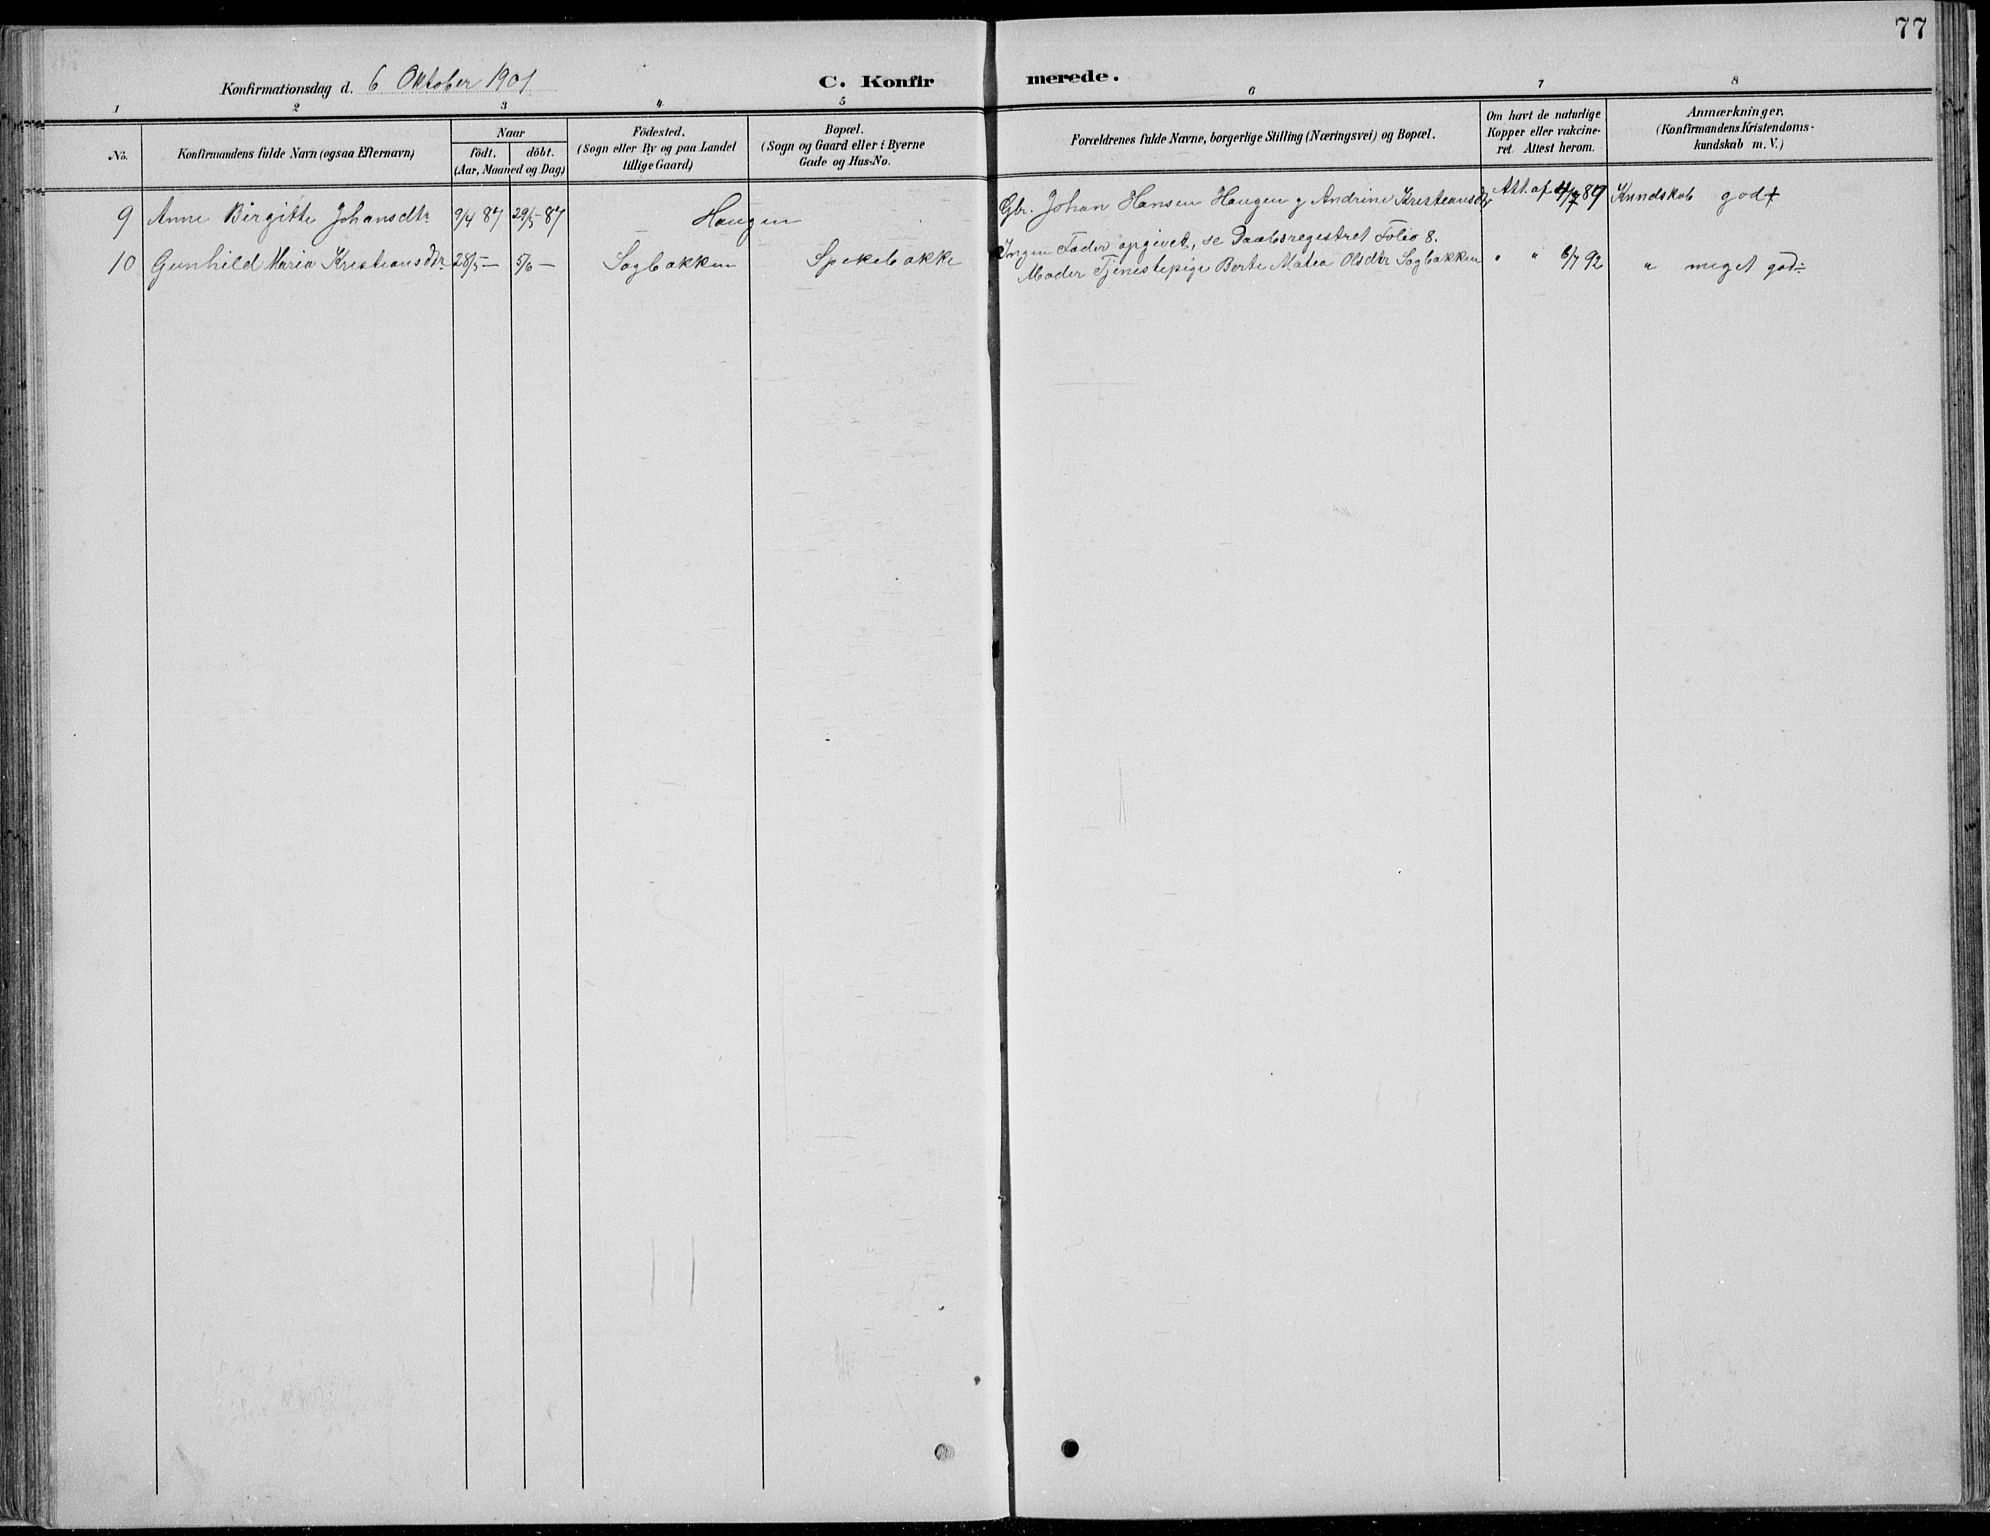 77
Konfirmationsdag d. 6 Oktober 1901 C. Konfirmerede.
1 2 3 4 5 6 7 8
No.
Konfirmandens fulde Navn (ogsaa Efternavn)
Naar
födt. döbt.
(Aar, Maaned og Dag)
Födested.
(Sogn eller By og paa Landet
tillige Gaard)
Bopæl.
(Sogn og Gaard eller i Byerne
Gade og Hus-No.
Forældrenes fulde Navne, borgerlige Stilling (Næringsvei) og Bopæl.
Om havt de naturlige
Kopper eller vakcine-
ret. Attest herom.
Anmærkninger.
(Konfirmandens Kristendoms-
kundskab m. V.)
9 Anne Birgitte Johansdtr 9/4 87 29/5-87 Haugen Gbr. Johan Hansen Haugen g Andrine Kristiansdtr Att. af 4/7 89 Kundskab god+
Ingen Fader opgivet, se Daabsregistret Folio 8.
10 Gunhild Maria Kristiansdtr 28/5 — 5/6 — Sagbakken Spekebakke Moder Tjenestepige Berte Matea Olsdtr Sagbakken " " 6/7 92 " meget god÷